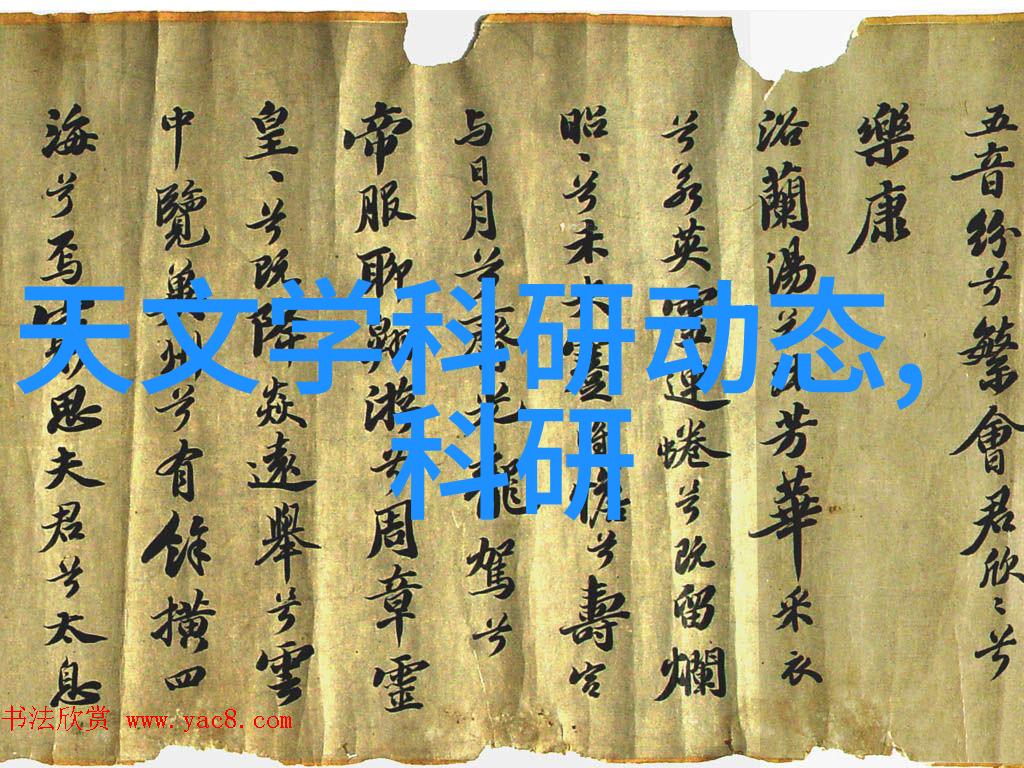 天文学科研动态,
科研
五音纷兮繁會君欣〻兮
樂康
浴蘭湯兮沐芳華采衣
兮若英靈連蜷兮既留爛
昭〻兮未央蹇將憺兮壽宫
与日月兮齊光龍駕兮
帝服聊翱游兮周章靈
皇〻兮既降焱遠舉兮雲
中覽冀州兮有餘横四
海兮焉窮思夫君兮太息
书法欣赏 www.yac8.com